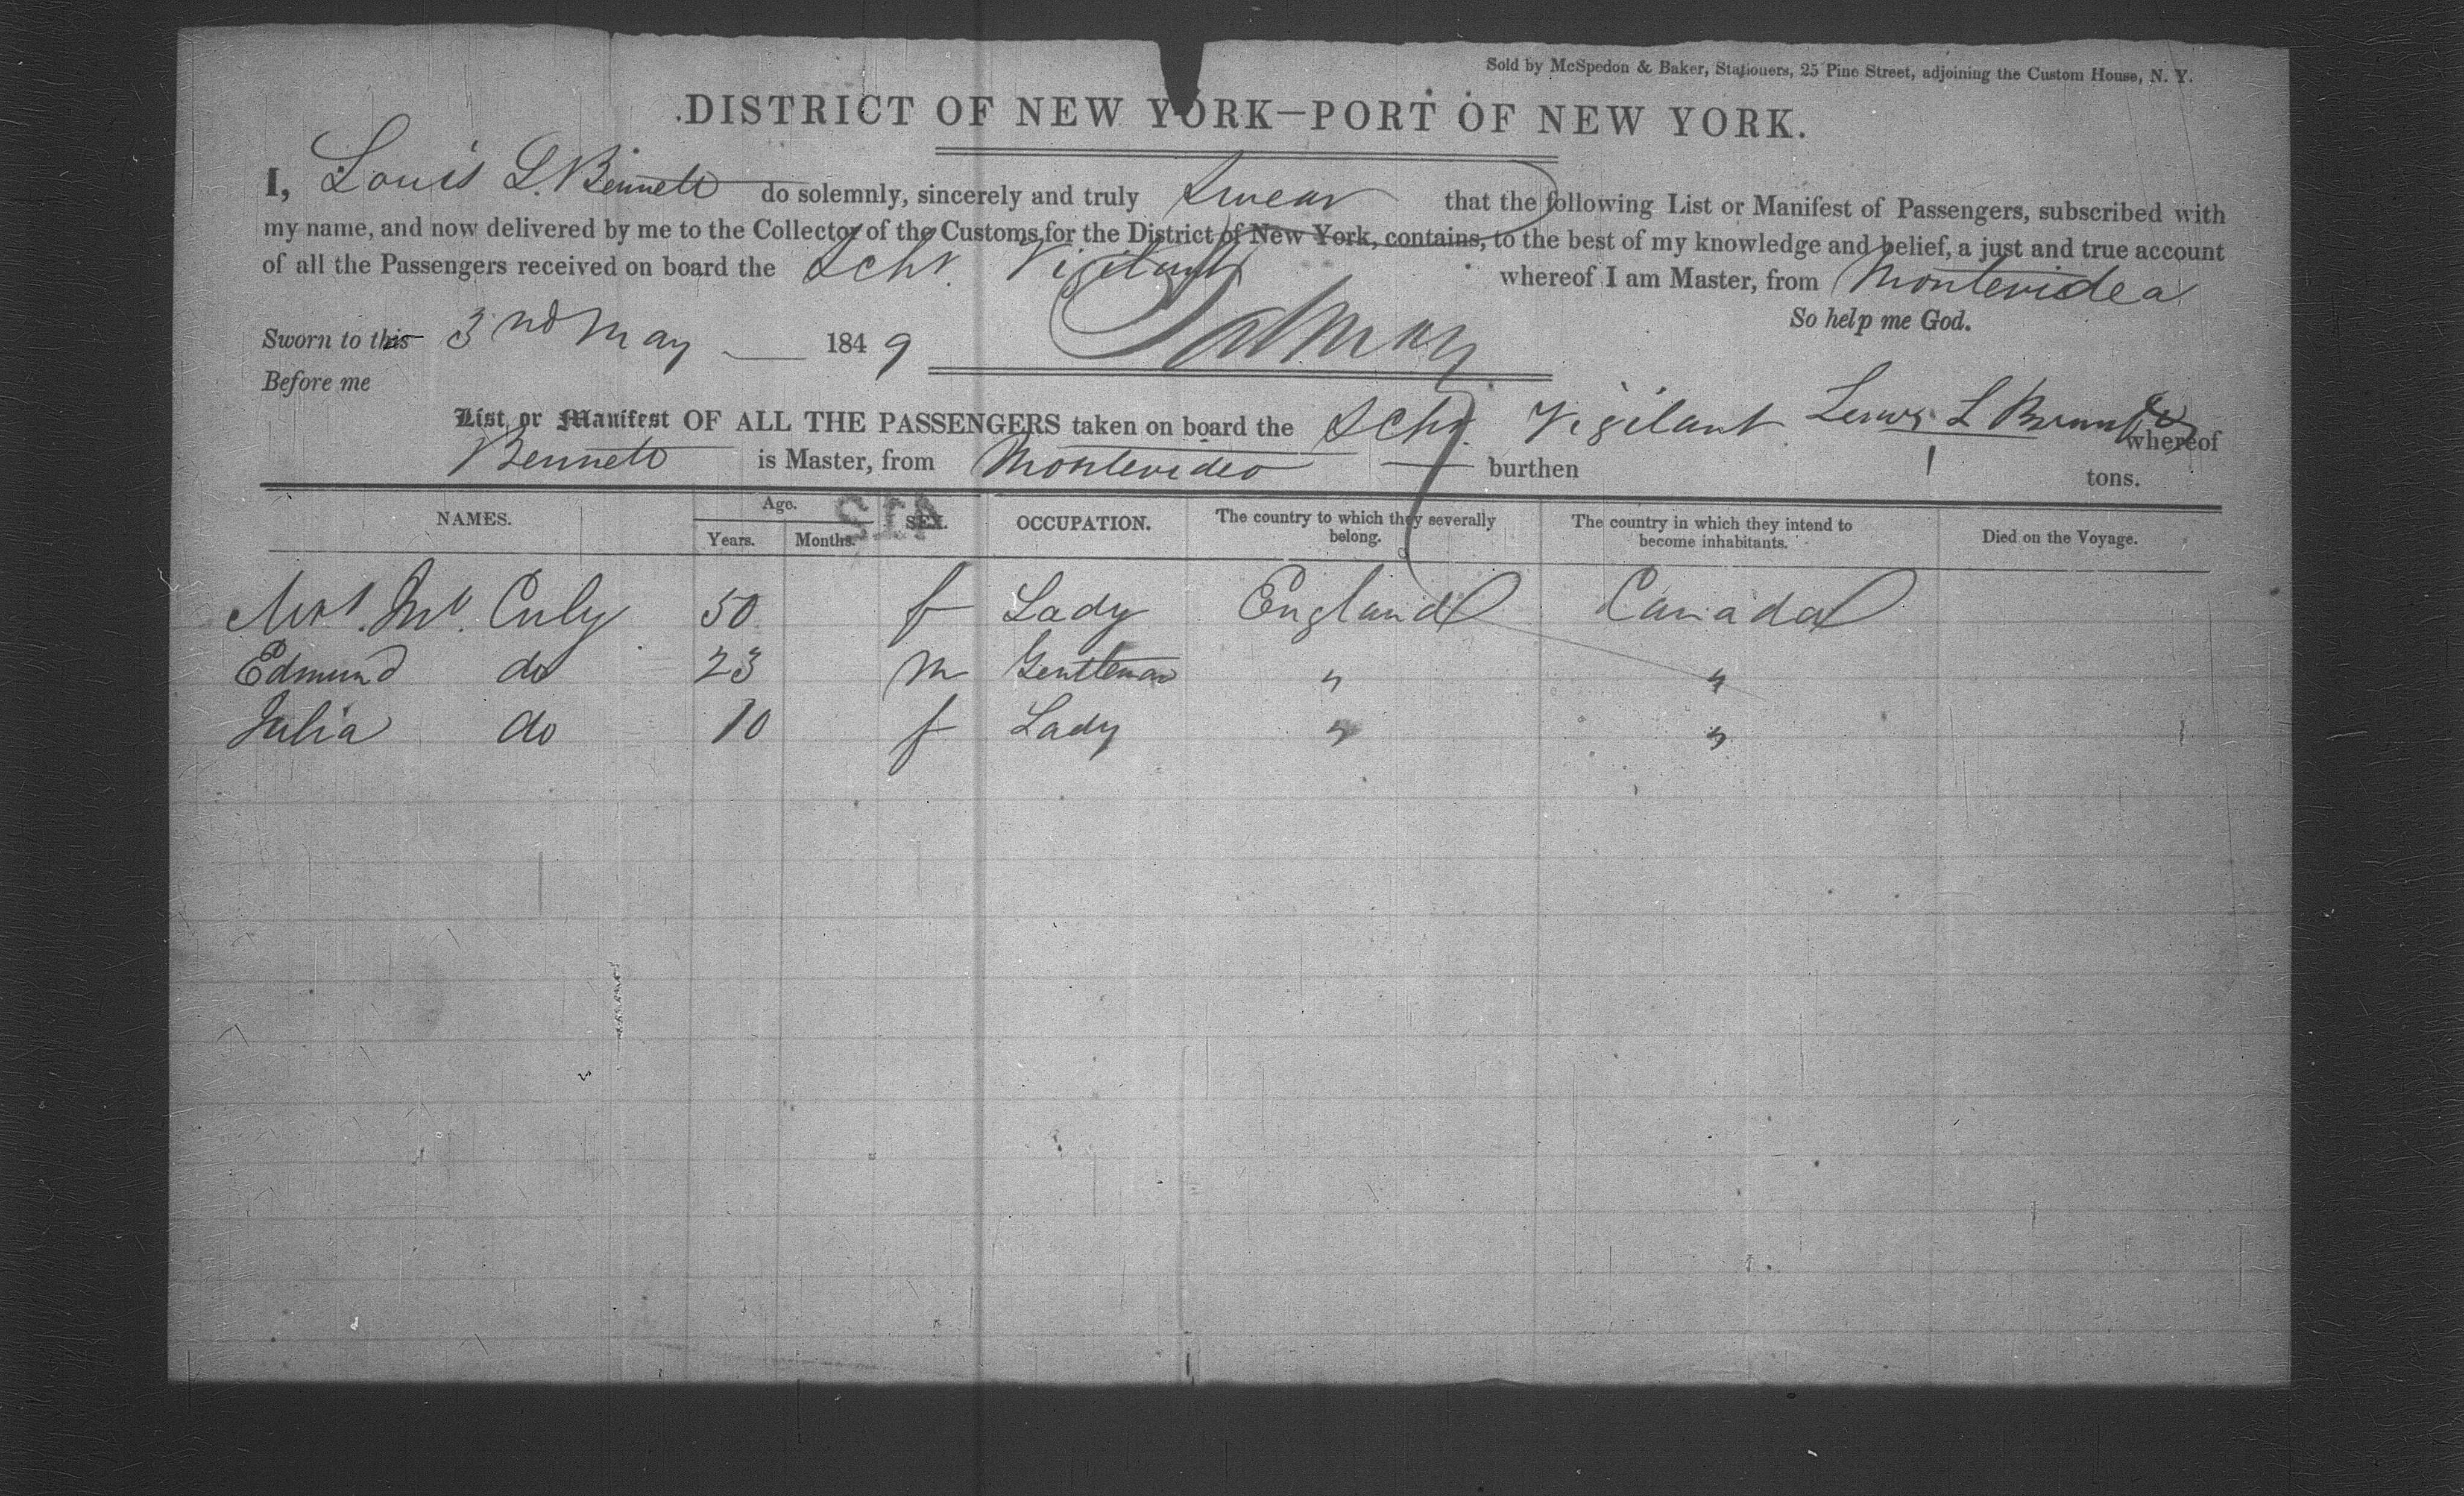 Sold by McSpedon & Baker, Stationers, 25 Pine Street, adjoining the Custom House, N. Y.
DISTRICT OF NEW YORK—PORT OF NEW YORK.
I, Louis L. Bennett do solemnly, sincerely and truly Swear that the following List or Manifest of Passengers, subscribed with
my name, and now delivered by me to the Collector of the Customs for the District of New York, contains, to the best of my knowledge and belief, a just and true account
of all the Passengers received on board the Schr. Vigilant whereof I am Master, from Montevidea
So help me God.
Sworn to this 3nd May 1849
Before me
List or Manifest OF ALL THE PASSENGERS taken on board the Schr. Vigilant whereof
Bennett is Master, from Montevideo burthen tons.
NAMES. Age. SEX. OCCUPATION. The country to which they severally belong. The country in which they intend to become inhabitants. Died on the Voyage.
Years. Months.
412
Mrs. Mc. Culy 50 f Lady England Canada
Edmund do 23 m Gentleman " "
Julia do 10 f Lady " "